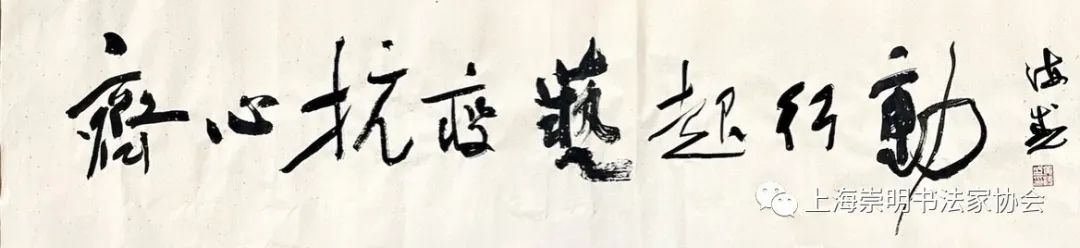 齊心抗疫藝起行動
上海崇明书法家协会